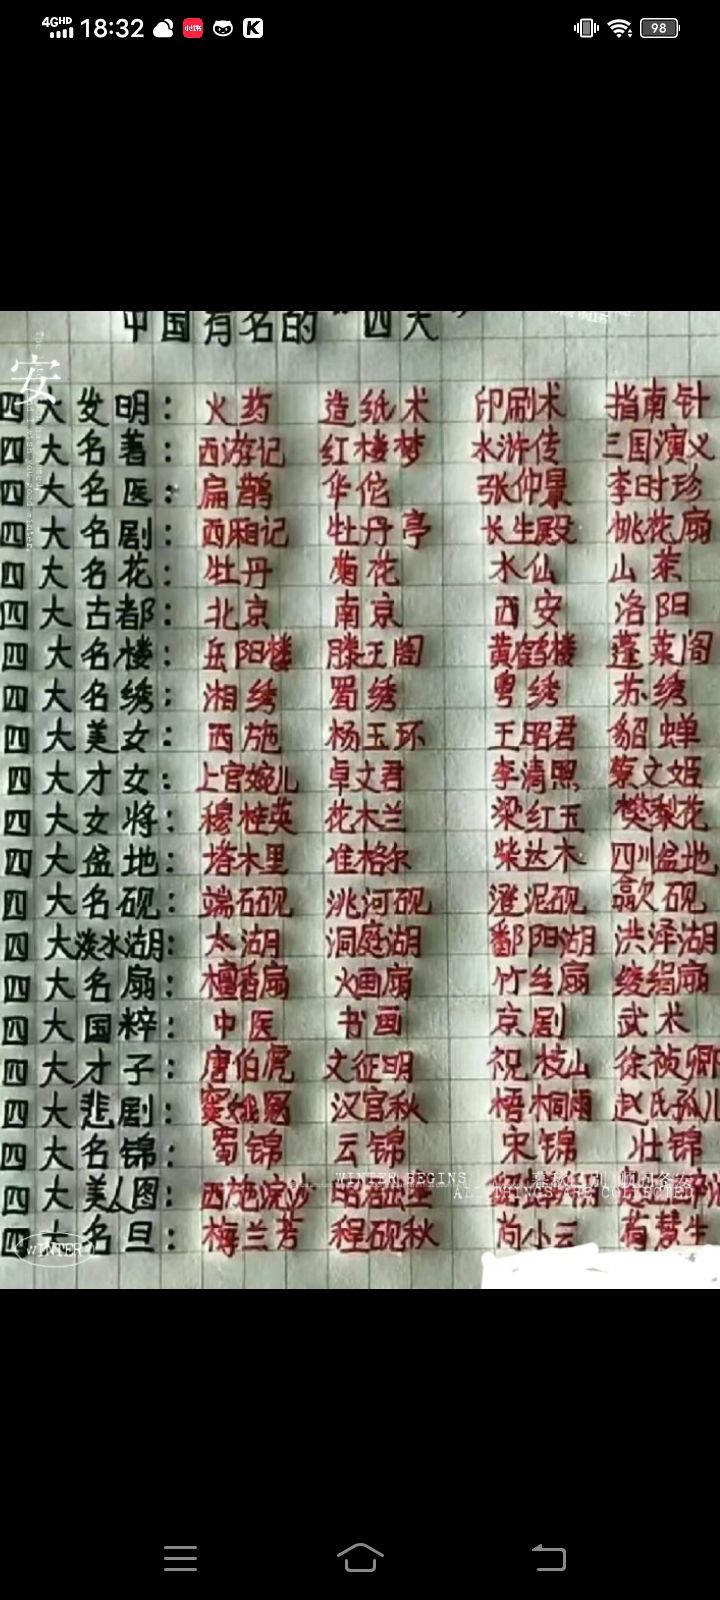 4GHD 18:32 98
中国有名的“四大”
安
四大发明：火药 造纸术 印刷术 指南针
四大名著：西游记 红楼梦 水浒传 三国演义
四大名医：扁鹊 华佗 张仲景 李时珍
四大名剧：西厢记 牡丹亭 长生殿 桃花扇
四大名花：牡丹 菊花 水仙 山茶
四大古都：北京 南京 西安 洛阳
四大名楼：岳阳楼 滕王阁 黄鹤楼 蓬莱阁
四大名绣：湘绣 蜀绣 粤绣 苏绣
四大美女：西施 杨玉环 王昭君 貂蝉
四大才女：上官婉儿 卓文君 李清照 蔡文姬
四大女将：穆桂英 花木兰 梁红玉 樊梨花
四大盆地：塔木里 准格尔 柴达木 四川盆地
四大名砚：端石砚 洮河砚 澄泥砚 歙砚
四大淡水湖：太湖 洞庭湖 鄱阳湖 洪泽湖
四大名扇：檀香扇 火画扇 竹丝扇 绫绢扇
四大国粹：中医 书画 京剧 武术
四大才子：唐伯虎 文征明 祝枝山 徐祯卿
四大悲剧：窦娥冤 汉宫秋 梧桐雨 赵氏孤儿
四大名锦：蜀锦 云锦 宋锦 壮锦
WINTER BEGINS
四大美人图：西施浣沙
ALL THINGS ARE COLLECTED
四大名旦：梅兰芳 程砚秋 尚小云 荀慧生
WINTER